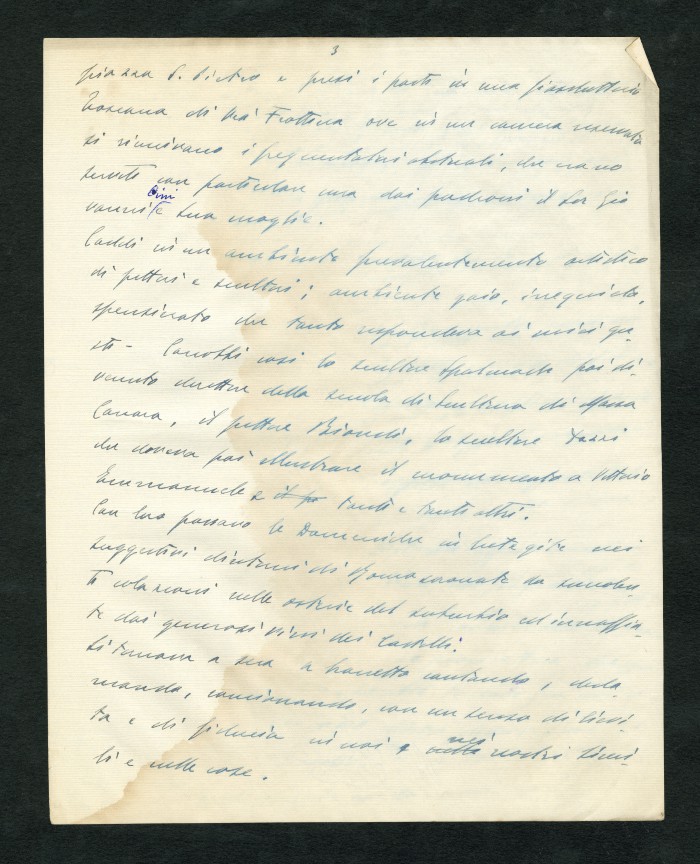 3
piazza S. Pietro e presi i pasti in una fiaschetteria
Toscana di Via Frattina ove in una camera riservata
si riunivano i frequentatori abituali, che erano
serviti con particolare cura dai padroni il Sor Gio
vanni Cini e sua moglie.
Caddi in un ambiente prevalentemente artistico
di pittori e scultori; ambiente gaio, irrequieto,
spensierato che tanto rispondeva ai miei gu-
sti - Conobbi così lo scultore poi di-
venuto direttore della scuola di scultura di Massa
Carrara, il pittore Biondi, lo scultore Dazzi
che doveva poi illustrare il monumento a Vittorio
Emmanuele e tanti e tanti altri.
Con loro passavo le Domeniche in liete gite nei
suggestivi dintorni di Roma coronate da succolen-
ti colazioni nelle osterie del suburbio ed innaffia-
te dai generosi vini dei Castelli!
Si tornava a sera a braccetto cantando, decla-
mando, con un senso di
ta e di fiducia in noi e nei nostri simi-
li e nelle cose.